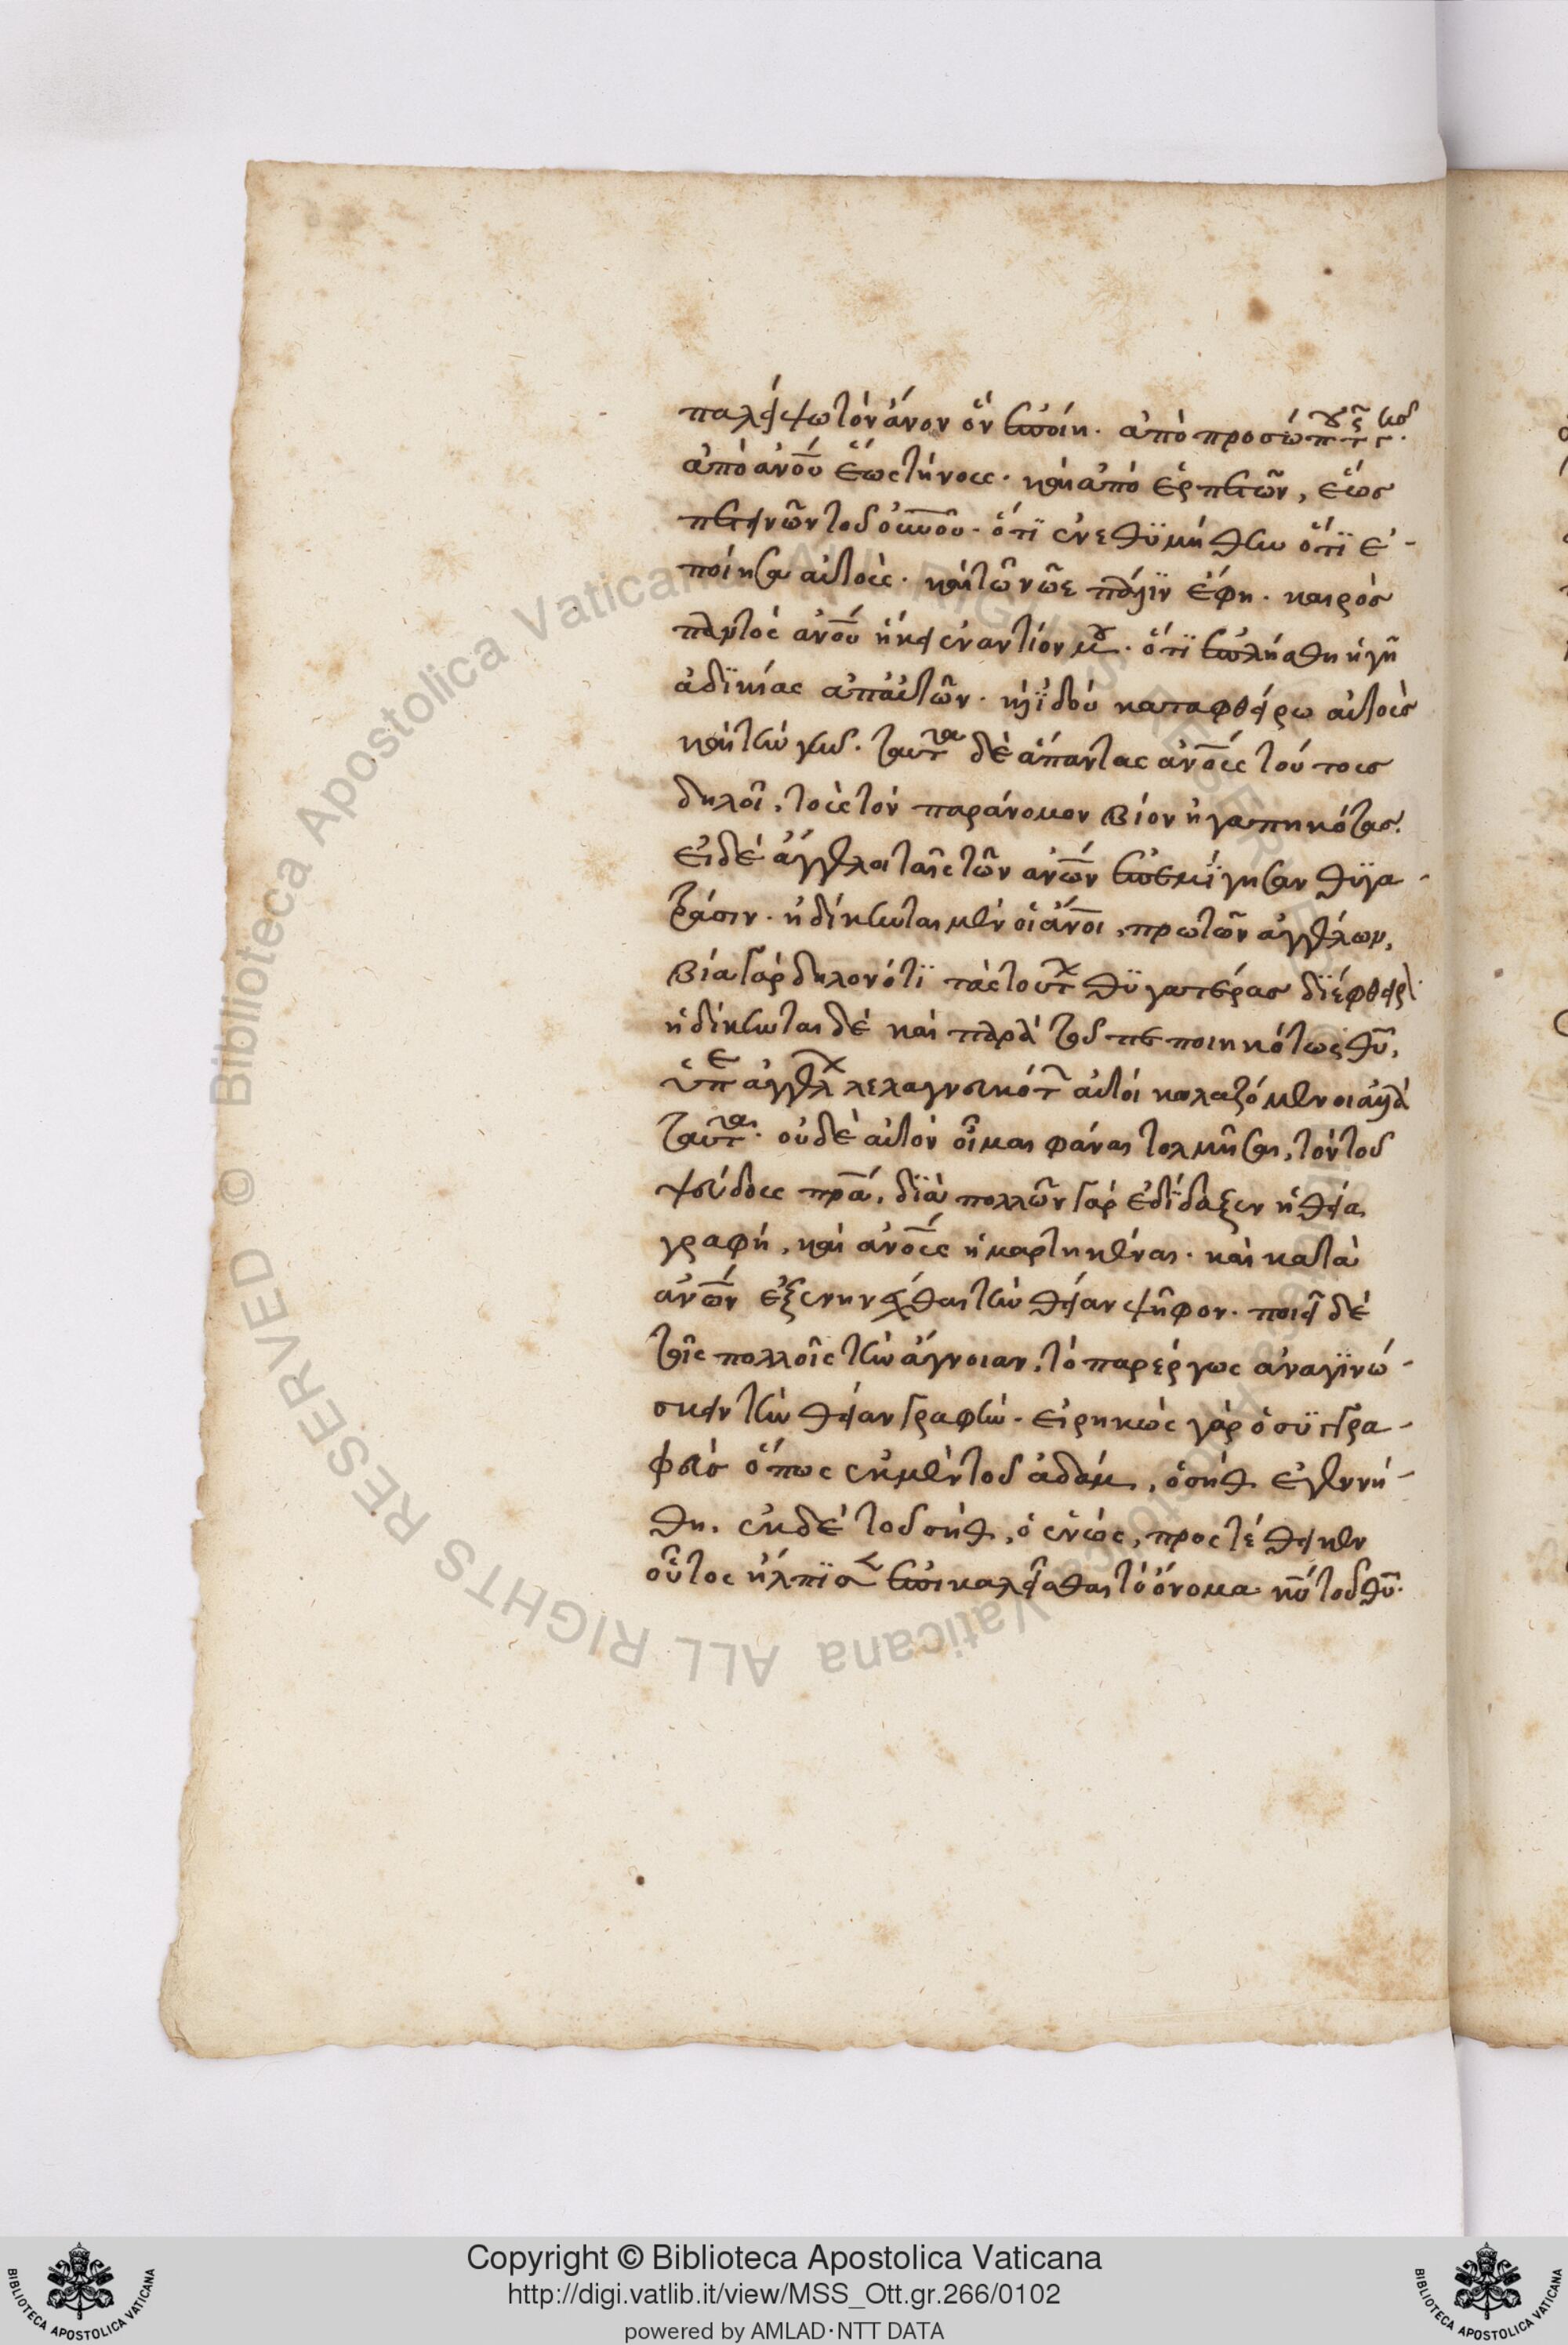 παλείψω τὸν ἄνον ὃν ἐποίη. ἀπὸ προσώπου τῆς γῆς.
ἀπὸ ἀνου ἕως κτήνους. καὶ ἀπὸ ἑρπετῶν, ἕως
πετεινῶν τοῦ οὐνου. ὅτϊ ἐνεθϋμήθην ὅτϊ ἐ-
ποίησα αὐτούς. καὶ τῶ νῶε πάλϊν ἔφη. καιρὸς
παντὸς ἀνου ἥκει ἐναντίον μου. ὅτϊ ἐπλήσθη ἡ γῆ
ἀδϊκίας ἀπ' αὐτῶν. καὶ ϊδοὺ καταφθείρω αὐτοὺς
καὶ τὴν γῆν. ταῦτα δὲ ἅπαντας ἀνους τούτους
δηλοῖ, τοὺς τὸν παράνομον βίον ἠγαπηκότας.
εἰ δὲ ἄγγελοι ταῖς τῶν ἀνων ἐπεμίγησαν θϋγα-
τράσιν. ἠδίκηνται μὲν οἱ ἄνοι, πρὸ τῶν ἀγγέλων,
βία γὰρ δηλονότϊ τὰς τούτων θϋγατέρας δϊέφθειραν.
ἠδίκηνται δὲ καὶ παρὰ τοῦ πεποιηκότως θυ,
ὑπὲρ ἀγγέλων λελαγνευκότων αὐτοὶ κολαζόμενοι ἀλλὰ
ταῦτα. οὐδὲ αὐτὸν οἶμαι φάναι τολμῆσαι, τὸν τοῦ
ψεύδους πρα, δϊὰ πολλῶν γὰρ ἐδίδαξεν ἡ θεία
γραφή, καὶ ἀνους ἡμαρτηκέναι. καὶ κατὰ
ἀνων ἐξενηνέχθαι τὴν θείαν ψῆφον. ποιεῖ δὲ
τοῖς πολλοῖς τὴν ἄγνοιαν, τὸ παρέργως ἀναγϊνώ-
σκειν τὴν θείαν γραφήν. εἰρηκὼς γὰρ ὁ σϋγγρα-
φεὺς ὅπως ἐκ μὲν τοῦ ἀδὰμ, ὁ σὴθ ἐγεννή-
θη. ἐκ δὲ τοῦ σὴθ, ὁ ἐνώς, προστέθεικεν
οὗτος ἤλπϊσεν ἐπικαλεῖσθαι τὸ ὄνομα κυ τοῦ θυ.
Copyright © Biblioteca Apostolica Vaticana
http://digi.vatlib.it/view/MSS_Ott.gr.266/0102
powered by AMLAD·NTT DATA